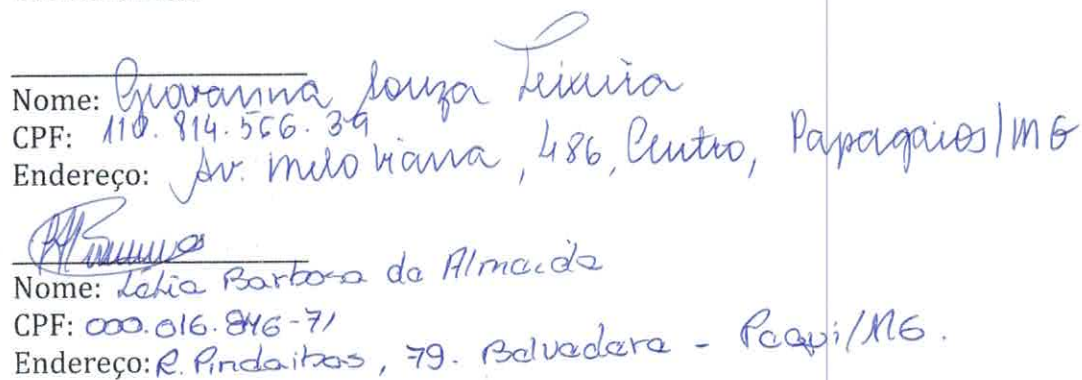 Nome: Giovanna Souza Teixeira
CPF: 110.814.566.39
Endereço: Av. Melo Viana, 486, Centro, Papagaios/MG
Nome: Lélia Barbosa de Almeida
CPF: 000.016.846-71
Endereço: R. Pindaibas, 79. Belvedere - /MG.